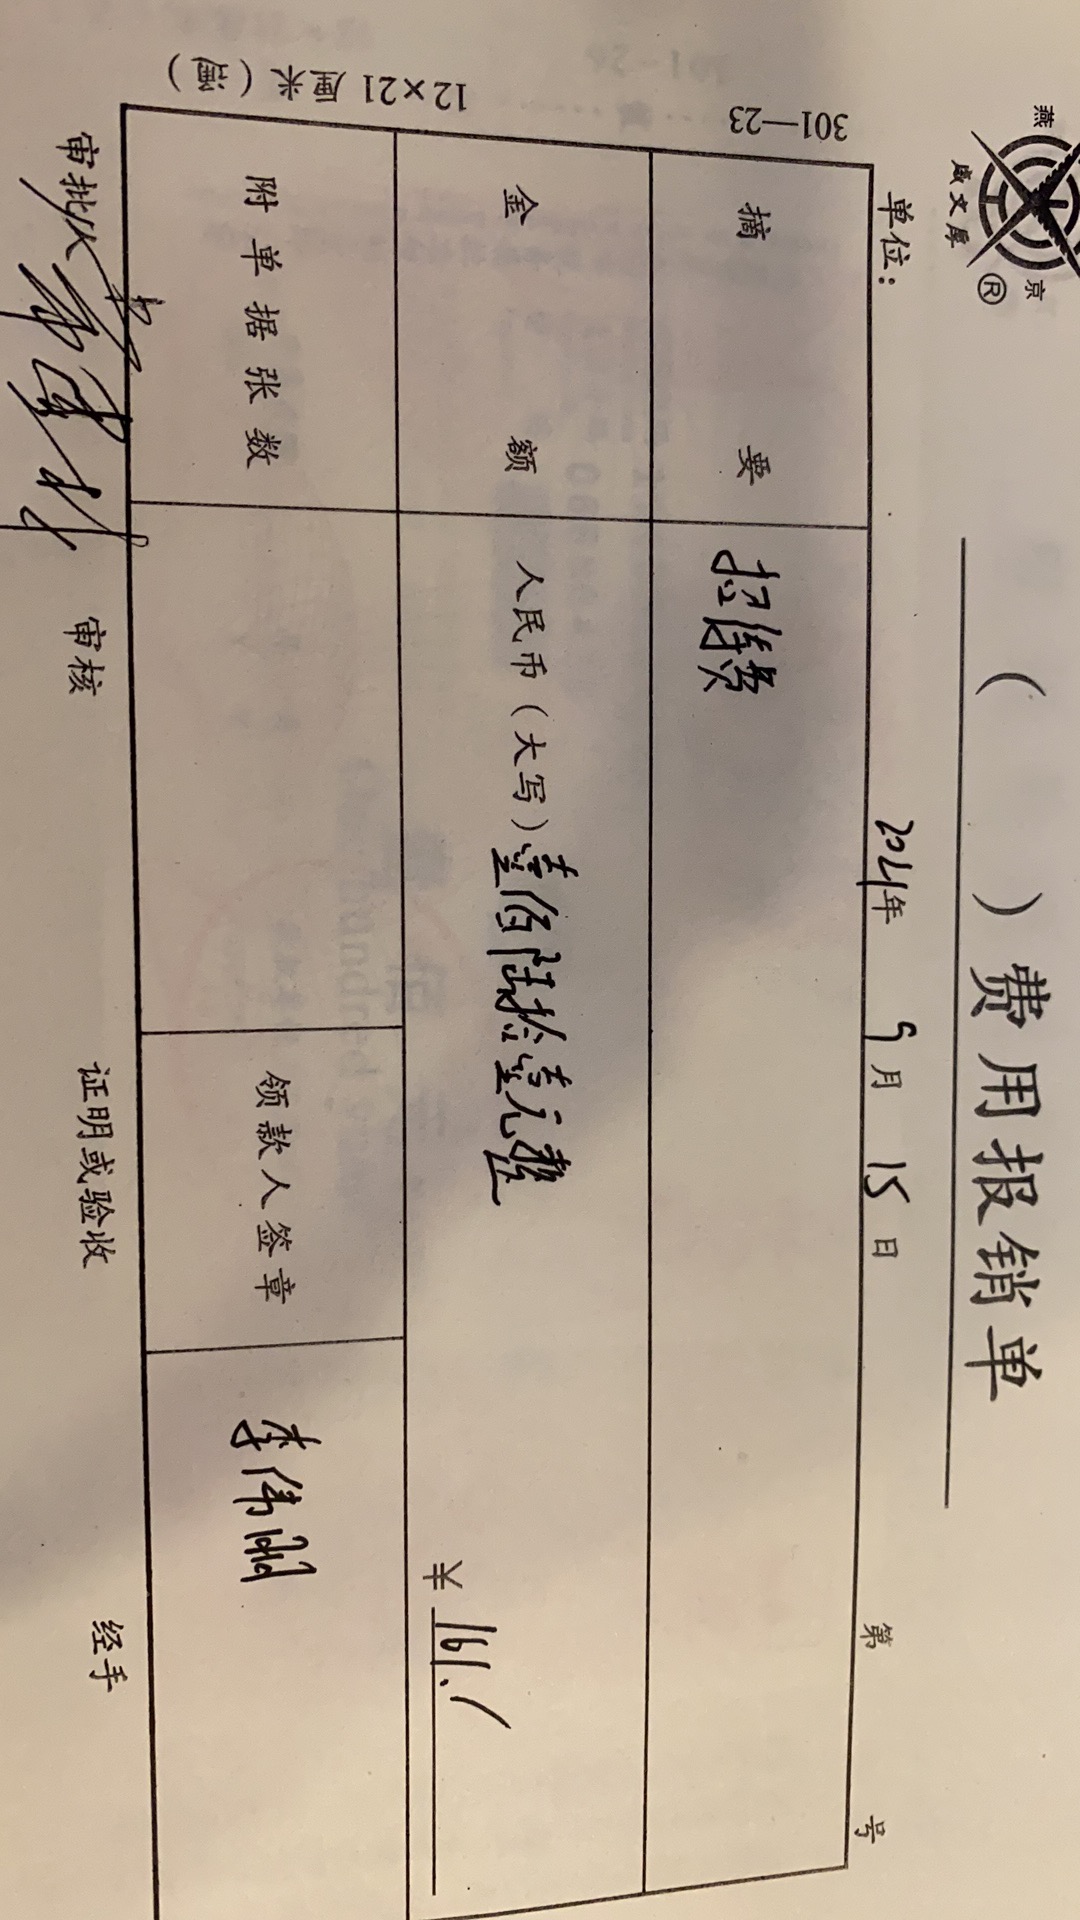 燕 京
威文厚 ®
( )费用报销单
单位: 2024年 9月 15日 第 号
301—23
摘 要 招待费
金 额 人民币(大写)壹佰陆拾壹元整 ¥ 161.
12×21 厘米(通)
附单据张数 领款人签章 李伟刚
审批人 审核 证明或验收 经手